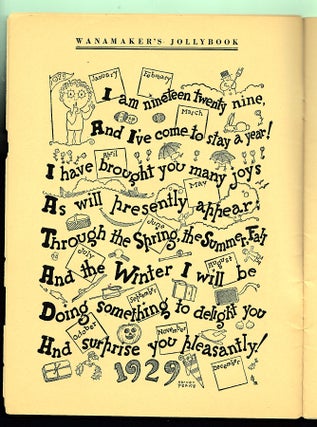 WANAMAKER'S JOLLYBOOK
January
February
I am nineteen twenty nine,
March
And I've come to stay a year!
April
I have brought you many joys
May
As will presently appear!
June
Through the Spring, the Summer, Fall
July
August
And the Winter I will be
September
Doing something to delight you
October
November
And surprise you pleasantly!
1929
December